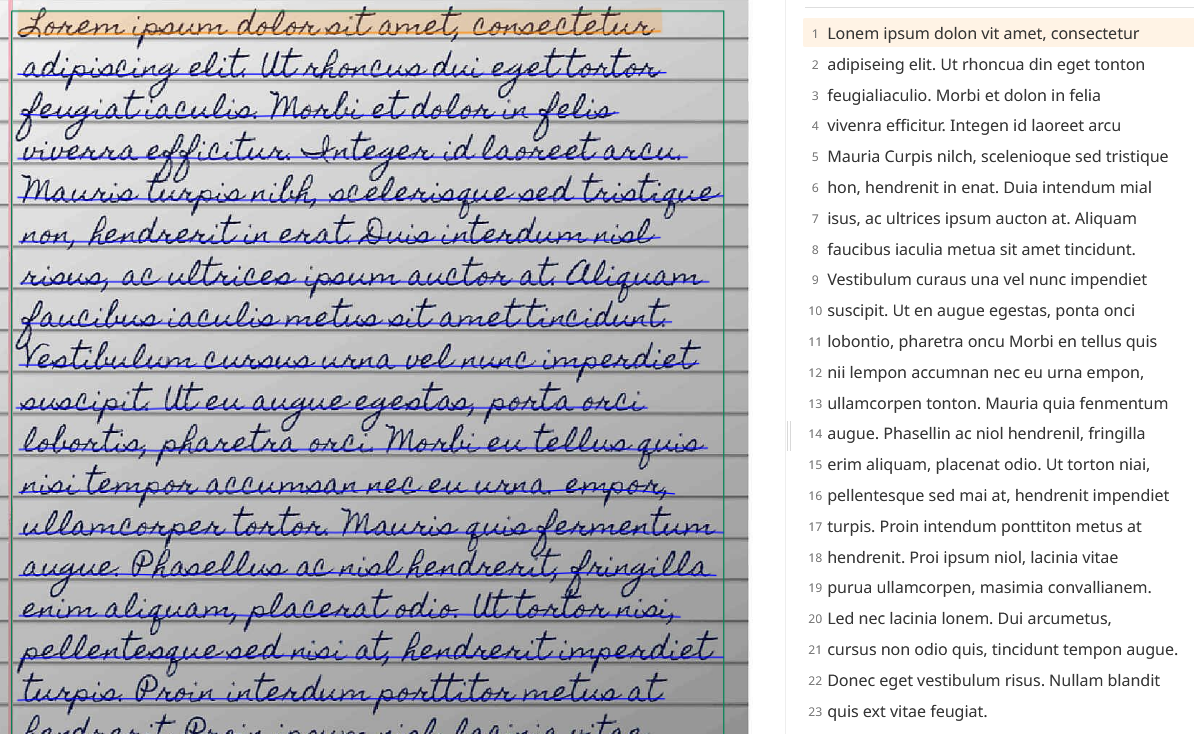 Lorem ipsum dolor sit amet, consectetur
adipiscing elit. Ut rhoncus dui eget tortor
feugiat iaculis. Morbi et dolor in felis
viverra efficitur. Integer id laoreet arcu.
Mauris turpis nibh, scelerisque sed tristique
non, hendrerit in erat. Duis interdum nisl
risus, ac ultrices ipsum auctor at. Aliquam
faucibus iaculis metus sit amet tincidunt.
Vestibulum cursus urna vel nunc imperdiet
suscipit. Ut eu augue egestas, porta orci
lobortis, pharetra orci. Morbi eu tellus quis
nisi tempor accumsan nec eu urna. empor,
ullamcorper tortor. Mauris quis fermentum
augue. Phasellus ac nisl hendrerit, fringilla
enim aliquam, placerat odio. Ut tortor nisi,
pellentesque sed nisi at, hendrerit imperdiet
turpis. Proin interdum porttitor metus at
hendrerit. Proin ipsum nisl, lacinia vitae
1 Lonem ipsum dolon vit amet, consectetur
2 adipiseing elit. Ut rhoncua din eget tonton
3 feugialiaculio. Morbi et dolon in felia
4 vivenra efficitur. Integen id laoreet arcu
5 Mauria Curpis nilch, scelenioque sed tristique
6 hon, hendrenit in enat. Duia intendum mial
7 isus, ac ultrices ipsum aucton at. Aliquam
8 faucibus iaculia metua sit amet tincidunt.
9 Vestibulum curaus una vel nunc impendiet
10 suscipit. Ut en augue egestas, ponta onci
11 lobontio, pharetra oncu Morbi en tellus quis
12 nii lempon accumnan nec eu urna empon,
13 ullamcorpen tonton. Mauria quia fenmentum
14 augue. Phasellin ac niol hendrenil, fringilla
15 erim aliquam, placenat odio. Ut torton niai,
16 pellentesque sed mai at, hendrenit impendiet
17 turpis. Proin intendum ponttiton metus at
18 hendrenit. Proi ipsum niol, lacinia vitae
19 purua ullamcorpen, masimia convallianem.
20 Led nec lacinia lonem. Dui arcumetus,
21 cursus non odio quis, tincidunt tempon augue.
22 Donec eget vestibulum risus. Nullam blandit
23 quis ext vitae feugiat.